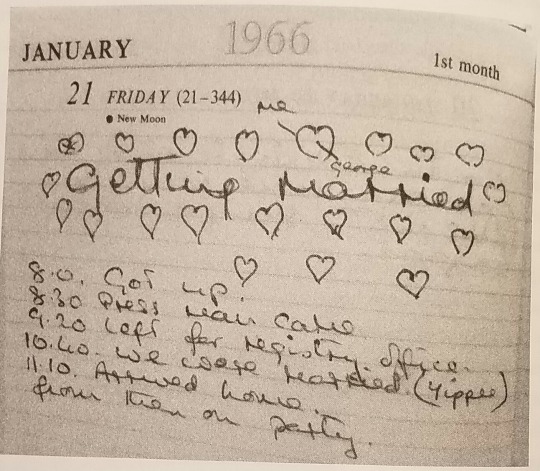 1966
JANUARY 1st month
21 FRIDAY (21–344) me
● New Moon
George
Getting Married
8.0. Got up.
8.30 Press man came
9.20 left for registry office.
10.40. we were married. (Yippee)
11.10. Arrived home.
from then on party.